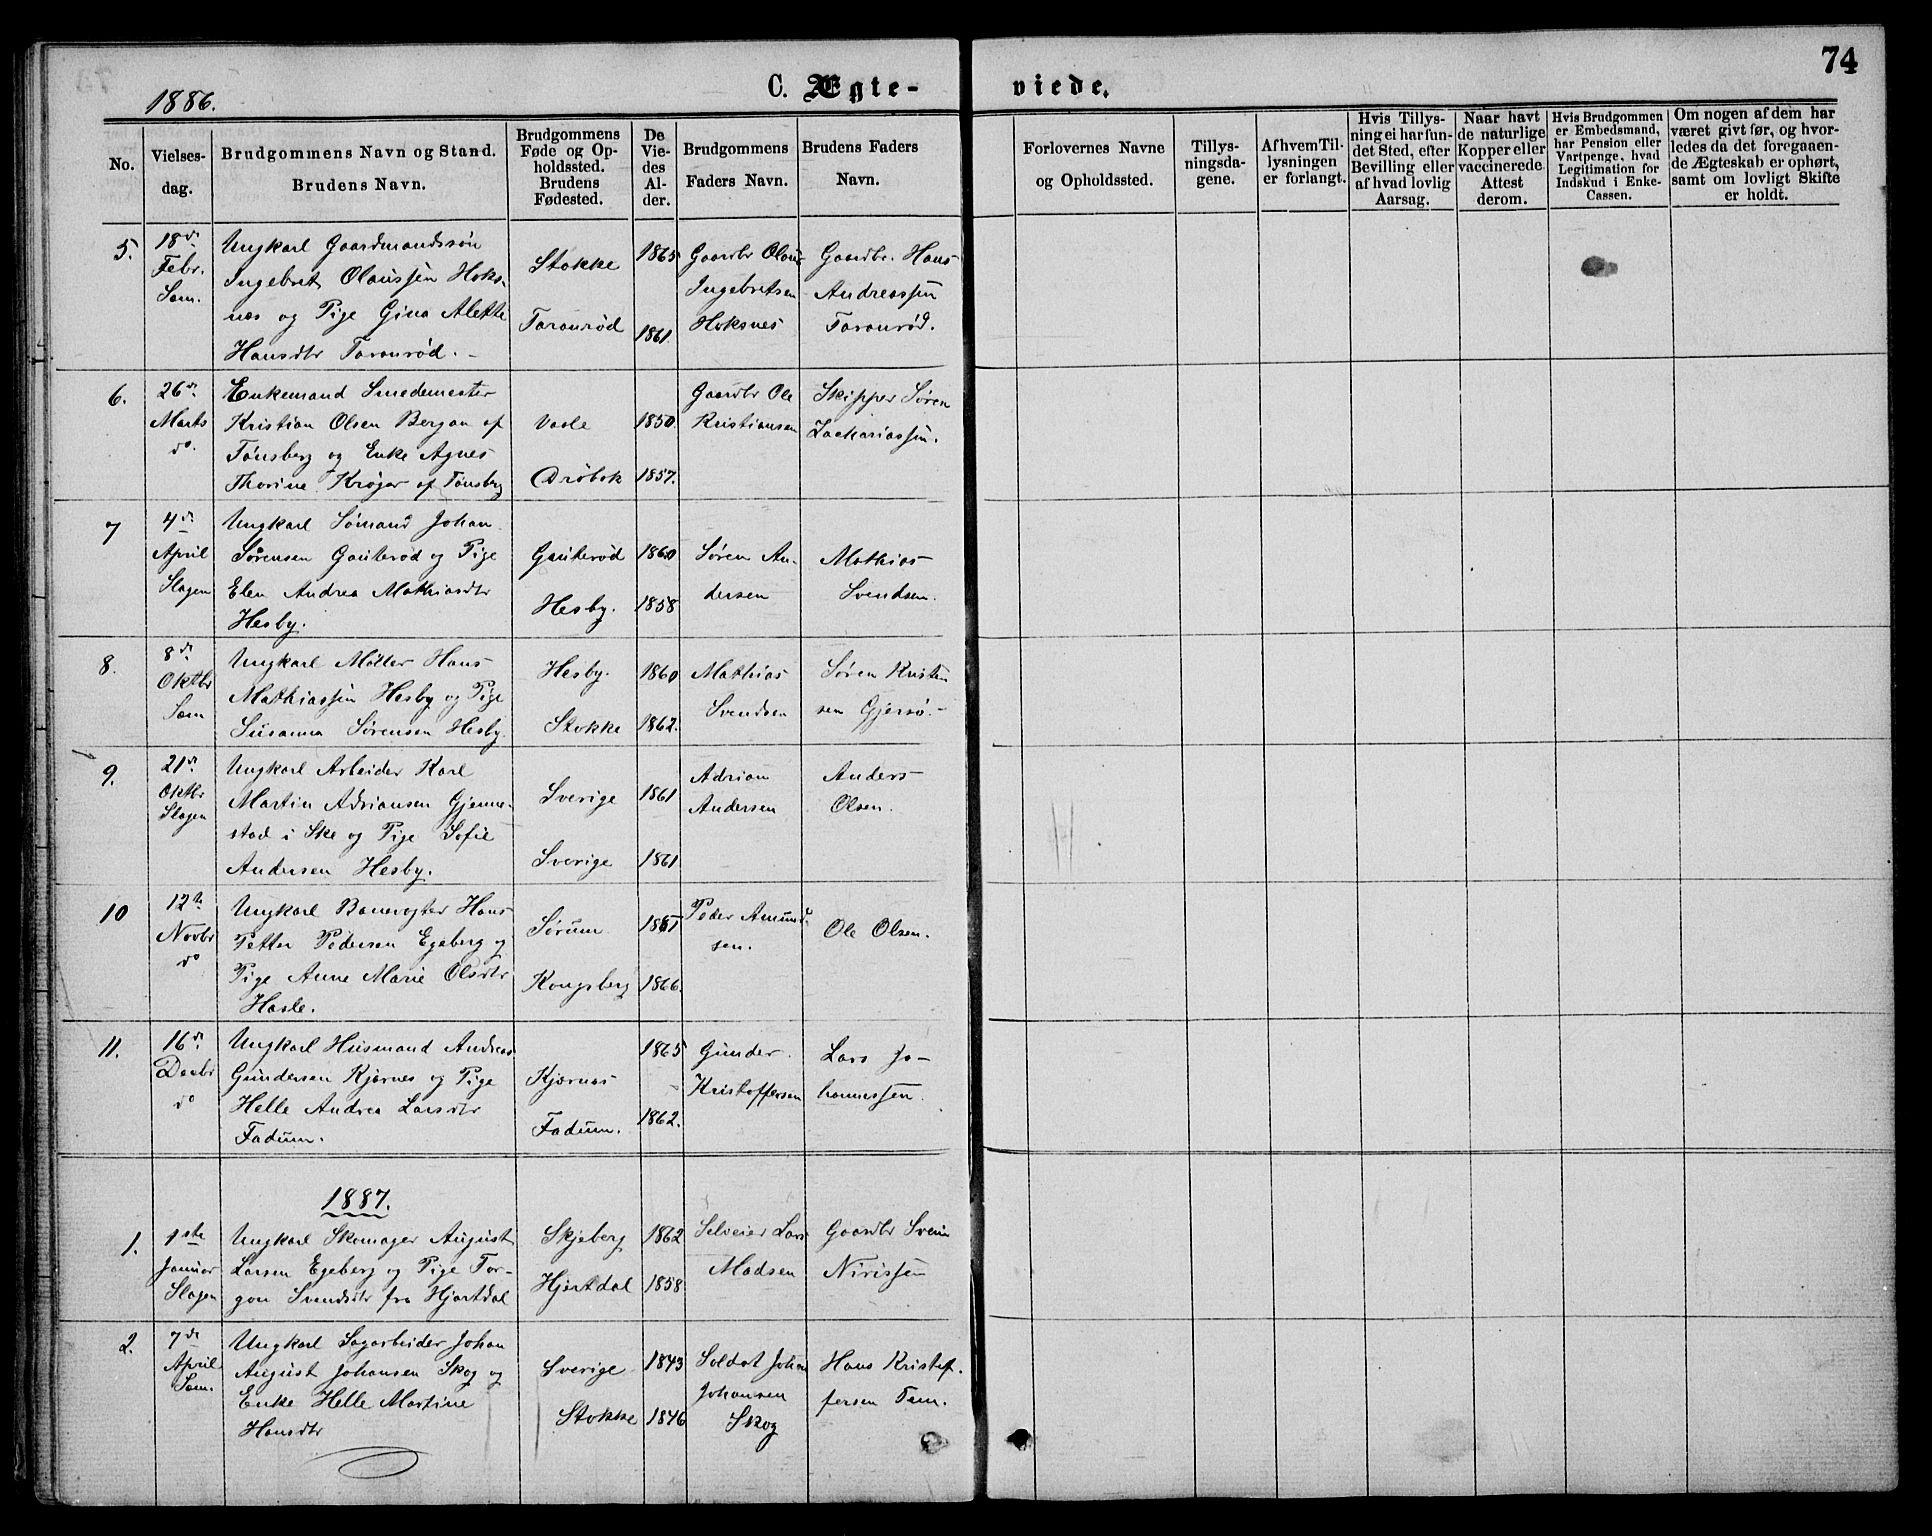 74
1886.
C. Ægte-
viede.
No.
Vielses-
dag.
Brudgommens Navn og Stand.
Brudens Navn.
Brudgommens
Føde og Op-
holdssted.
Brudens
Fødested.
De
Vie-
des
Al-
der.
Brudgommens
Faders Navn.
Brudens Faders
Navn.
Forlovernes Navne
og Opholdssted.
Tillys-
ningsda-
gene.
Af hvem Til-
lysningen
er forlangt.
Hvis Tillys-
ning ei har fun-
det Sted, efter
Bevilling eller
af hvad lovlig
Aarsag.
Naar havt
de naturlige
Kopper eller
vaccinerede.
Attest
derom.
Hvis Brudgommen
er Embedsmand,
har Pension eller
Vartpenge, hvad
Legitimation for
Indskud i Enke-
Cassen.
Om nogen af dem har
været givt før, og hvor-
ledes da det foregaaen-
de Ægteskab er ophørt,
samt om lovligt Skifte
er holdt.
5.
18de
Febr.
Sem.
Ungkarl Gaardmandssøn
Ingebret Olaussen Hoks-
næs og Pige Gina Alette
Hansdtr Taranrød.
Stokke
Taranrød
1865
1861
Gaardbr Olaus
Ingebretsen
Hoksnes
Gaardbr. Hans
Andreassen
Taranrød.
6.
26de
Marts
do.
Enkemand Smedemester
Kristian Olsen Bergan af
Tønsberg og Enke Agnes
Thorine Krøger af Tønsberg
Vaale
Drøbak
1850.
1857.
Gaardbr Ole
Kristiansen
Skipper Søren
Zachariassen.
7
4de
April
Slagen
Ungkarl Sømand Johan
Sørensen Gauterød og Pige
Elen Andrea Mathiasdtr
Hesby.
Gauterød
Hesby.
1860
1858
Søren An-
dersen
Mathias
Svendsen.
8.
8de
Oktbr
Sem
Ungkarl Møller Hans
Mathiassen Hesby og Pige
Susanna Sørensen Hesby.
Hesby.
Stokke
1860
1862.
Mathias
Svendsen
Søren Kristen
sen Gjersø.
9.
21de
Oktbr
Slagen
Ungkarl Arbeider Karl
Martin Adriansen Gjenne-
stad i Ske og Pige Sofie
Andersen Hesby.
Sverige
Sverige
1861
1861
Adrian
Andersen
Anders
Olsen.
10
12te
Novbr
do
Ungkarl Banevogter Hans
Petter Pedersen Egeberg og
Pige Anne Marie Olsdtr
Hasle.
Sørum
Kongsberg
1866.
Peder Amund
sen.
Ole Olsen.
11.
16de
Decbr
do
Ungkarl Husmand Andreas
Gundersen Kjærnes og Pige
Helle Andrea Larsdtr
Fadum.
Kjærnæs
Fadum.
1865
1862.
Gunder
Kristoffersen
Lars Jo-
hannessen.
1887.
1.
1ste
Januar
Slagen
Ungkarl Skomager August
Larsen Egeberg og Pige Tor-
gon Svendsdtr fra Hjartdal
Skjeberg
Hjartdal
1862
1858
Selveier Lars
Madsen
Gaardbr Svein
Nirissen
2.
7de
April
Sem.
Ungkarl Sagarbeider Johan
August Johansen Skog og
Enke Helle Martine
Hansdtr
Sverige
Stokke
1843
1846
Soldat Johan
Johansen
Skog
Hans Kristof-
fersen Tem.